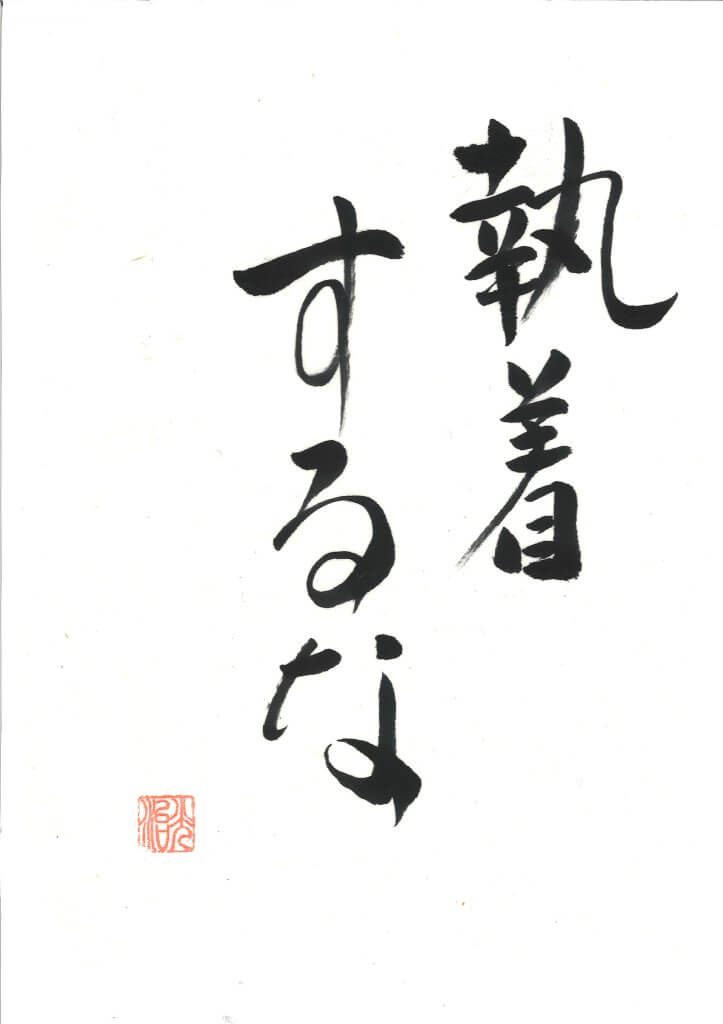 執着
するな